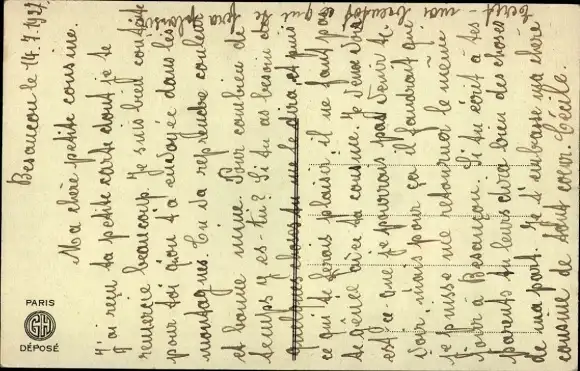 Besançon le 14.7.1927.
Ma chère petite cousine.
J'ai reçu ta petite carte dont je te
remercie beaucoup. Je suis bien contente
pour toi qu'on t'a envoyée dans les
montagnes. Tu va reprendre couleur
et bonne mine. Pour combien de
temps y es-tu? Si tu as besoin de
quelques choses tu me le dira, et puis
ce qui te ferais plaisir il ne faut pas
te gêner avec ta cousine. Je veux
est ce que je pourrais pas venir te
voir, mais pour ça il faudrait que
je puisse me retourner le même
jour à Besançon. Si tu écrit à tes
parents tu leurs dira bien des choses
de ma part. Je t'embrasse ma chère
cousine de tout coeur. Cécile.
Ecrit-moi bientôt ce qui te fera plaisir.
PARIS
GH
DÉPOSÉ